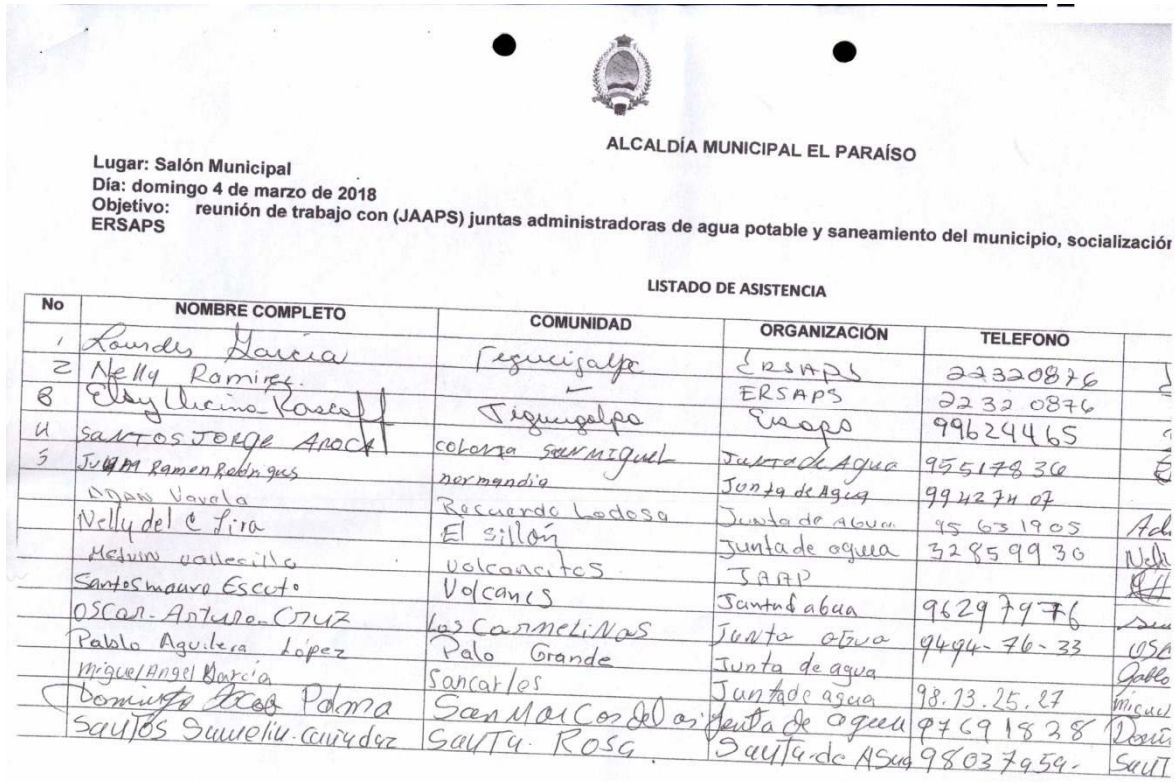 ALCALDÍA MUNICIPAL EL PARAÍSO
Lugar: Salón Municipal
Día: domingo 4 de marzo de 2018
Objetivo: reunión de trabajo con (JAAPS) juntas administradoras de agua potable y saneamiento del municipio, socialización
ERSAPS
LISTADO DE ASISTENCIA
No NOMBRE COMPLETO COMUNIDAD ORGANIZACIÓN TELEFONO
1 Lourdes Garcia Tegucigalpa ERSAPS 22320876
2 Nelly Ramirez. ERSAPS 2232 0876
3 99624465
4 SANTOS JORGE colonia san miguel Junta de Agua 95517836
5 Ramon normandia Junta de Agua 99427407
Recuerdo Lodosa Junta de 95631905
Nelly del C Lira El sillón Junta de 32859930
Melvin vallecillo volcancitos JAAP
Santos mauro Volcanes 96297976
OSCAR-Arturo-Cruz Las CarmeliNas Junta 9494-76-33
Pablo Aguilera López Palo Grande Junta de agua
Miguel Angel Garcia San carlos Junta de agua 98.13.25.27
Palma San Marcos de 97691838
SANTOS SANTA. ROSA 98037959-